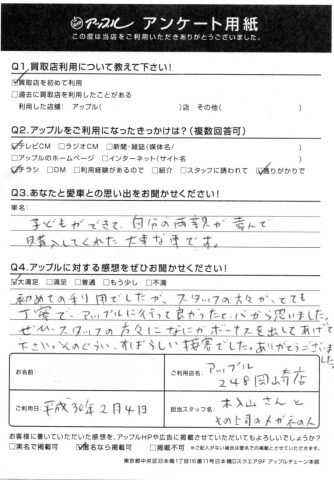 アップル アンケート用紙
この度は当店をご利用いただきありがとうございました。
Q1.買取店利用について教えて下さい!
☑買取店を初めて利用
□過去に買取店を利用したことがある
利用した店舗: アップル( )店 その他( )
Q2.アップルをご利用になったきっかけは?(複数回答可)
☑テレビCM □ラジオCM □新聞・雑誌(媒体名/ )
□アップルのホームページ □インターネット(サイト名 )
☑チラシ □DM □利用経験があるので □紹介 □スタッフに誘われて ☑通りがかりで
Q3.あなたと愛車との思い出をお聞かせください!
車名:
子どもができて、自分の両親が喜んで
購入してくれた大事な車です。
Q4.アップルに対する感想をぜひお聞かせください!
☑大満足 □満足 □普通 □もう少し □不満
初めての利用でしたが、スタッフの方々がとても
丁寧で、アップルに行って良かったと、心から思いました。
ぜひ、スタッフの方々になにかボーナスを出してあげて
下さい。そのぐらい、すばらしい接客でした。ありがとうございました。
お名前:
ご利用店名: アップル
248岡崎店
ご利用日: 平成30年2月4日
担当スタッフ名: さんと
その上司のメガネの人
お客様に書いていただいた感想を、アップルHPや広告に掲載させていただいてもよろしいでしょうか?
□実名で掲載可 ☑匿名なら掲載可 □掲載不可 ※ご記入がない場合は匿名での掲載とさせていただきます。
東京都中央区日本橋1丁目10番11号日本橋Dスクエア9F アップルチェーン本部